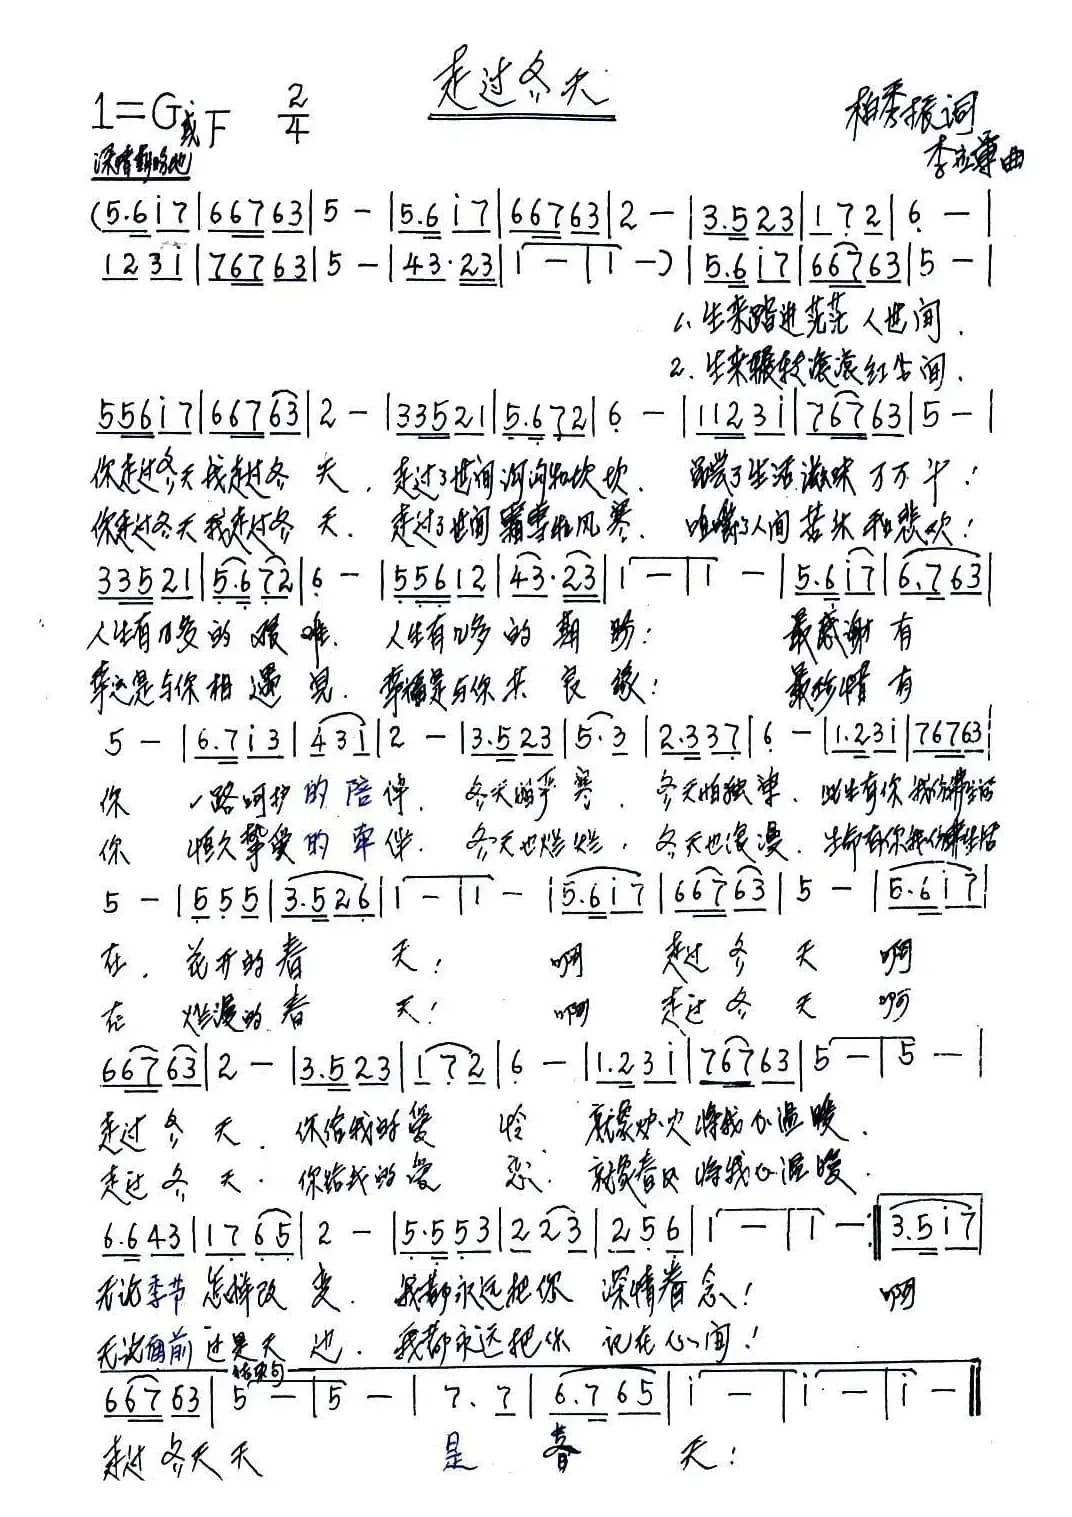 走过冬天
1=G或下 2/4
柏秀振词
深情期盼地
李立尊曲
(5.6 i7|66763|5 -|5.6 i7|66763|2 -|3.523|172|6 -|
123i|76763|5 -|43.23|1 -|1 -)|5.6 i7|66763|5 -|
1、生来踏进茫茫人世间.
2.生来辗转滚滚红尘间.
556i7|66763|2 -|33521|5.672|6 -|1123i|76763|5 -|
你走过冬天我走过冬天.走过了世间沟沟和坎坎.品尝了生活滋味万万千!
你走过冬天我走过冬天.走过了世间霜雪和风寒.咀嚼了人间苦乐和悲欢!
33521|5.672|6 -|55612|43.23|1 -|1 -|5.6 i7|6.763|
人生有几多的艰难.人生有几多的期盼:最感谢有
幸运是与你相遇见.幸福是与你共良缘:最珍惜有
5 -|6.7i3|43i|2 -|3.523|5.3|2.337|6 -|1.23i|76763|
你 一路呵护的陪伴.冬天怕严寒.冬天怕独单.此生有你我仿佛生活
你 恒久挚爱的牵伴.冬天也烂烂.冬天也浪漫.生命有你我仿佛生活
5 -|555|3.526|1 -|1 -|5.6i7|66763|5 -|5.6i7|
在.花开的春天!啊 走过冬天 啊
在 烂漫的春天!啊 走过冬天 啊
66763|2 -|3.523|172|6 -|1.23i|76763|5 -|5 -|
走过冬天.你给我的爱怜 就象炉火将我心温暖.
走过冬天.你给我的爱恋.就象春风将我心温暖.
6.643|1765|2 -|5.553|223|256|1 -|1 -:‖3.5i7|
无论季节怎样改变.我都永远把你深情眷念!啊
无论面前还是天边.我都永远把你记在心间!
结束句
66763|5 -|5 -|7.7|6.765|i -|i -|i -‖
走过冬天天 是春天!